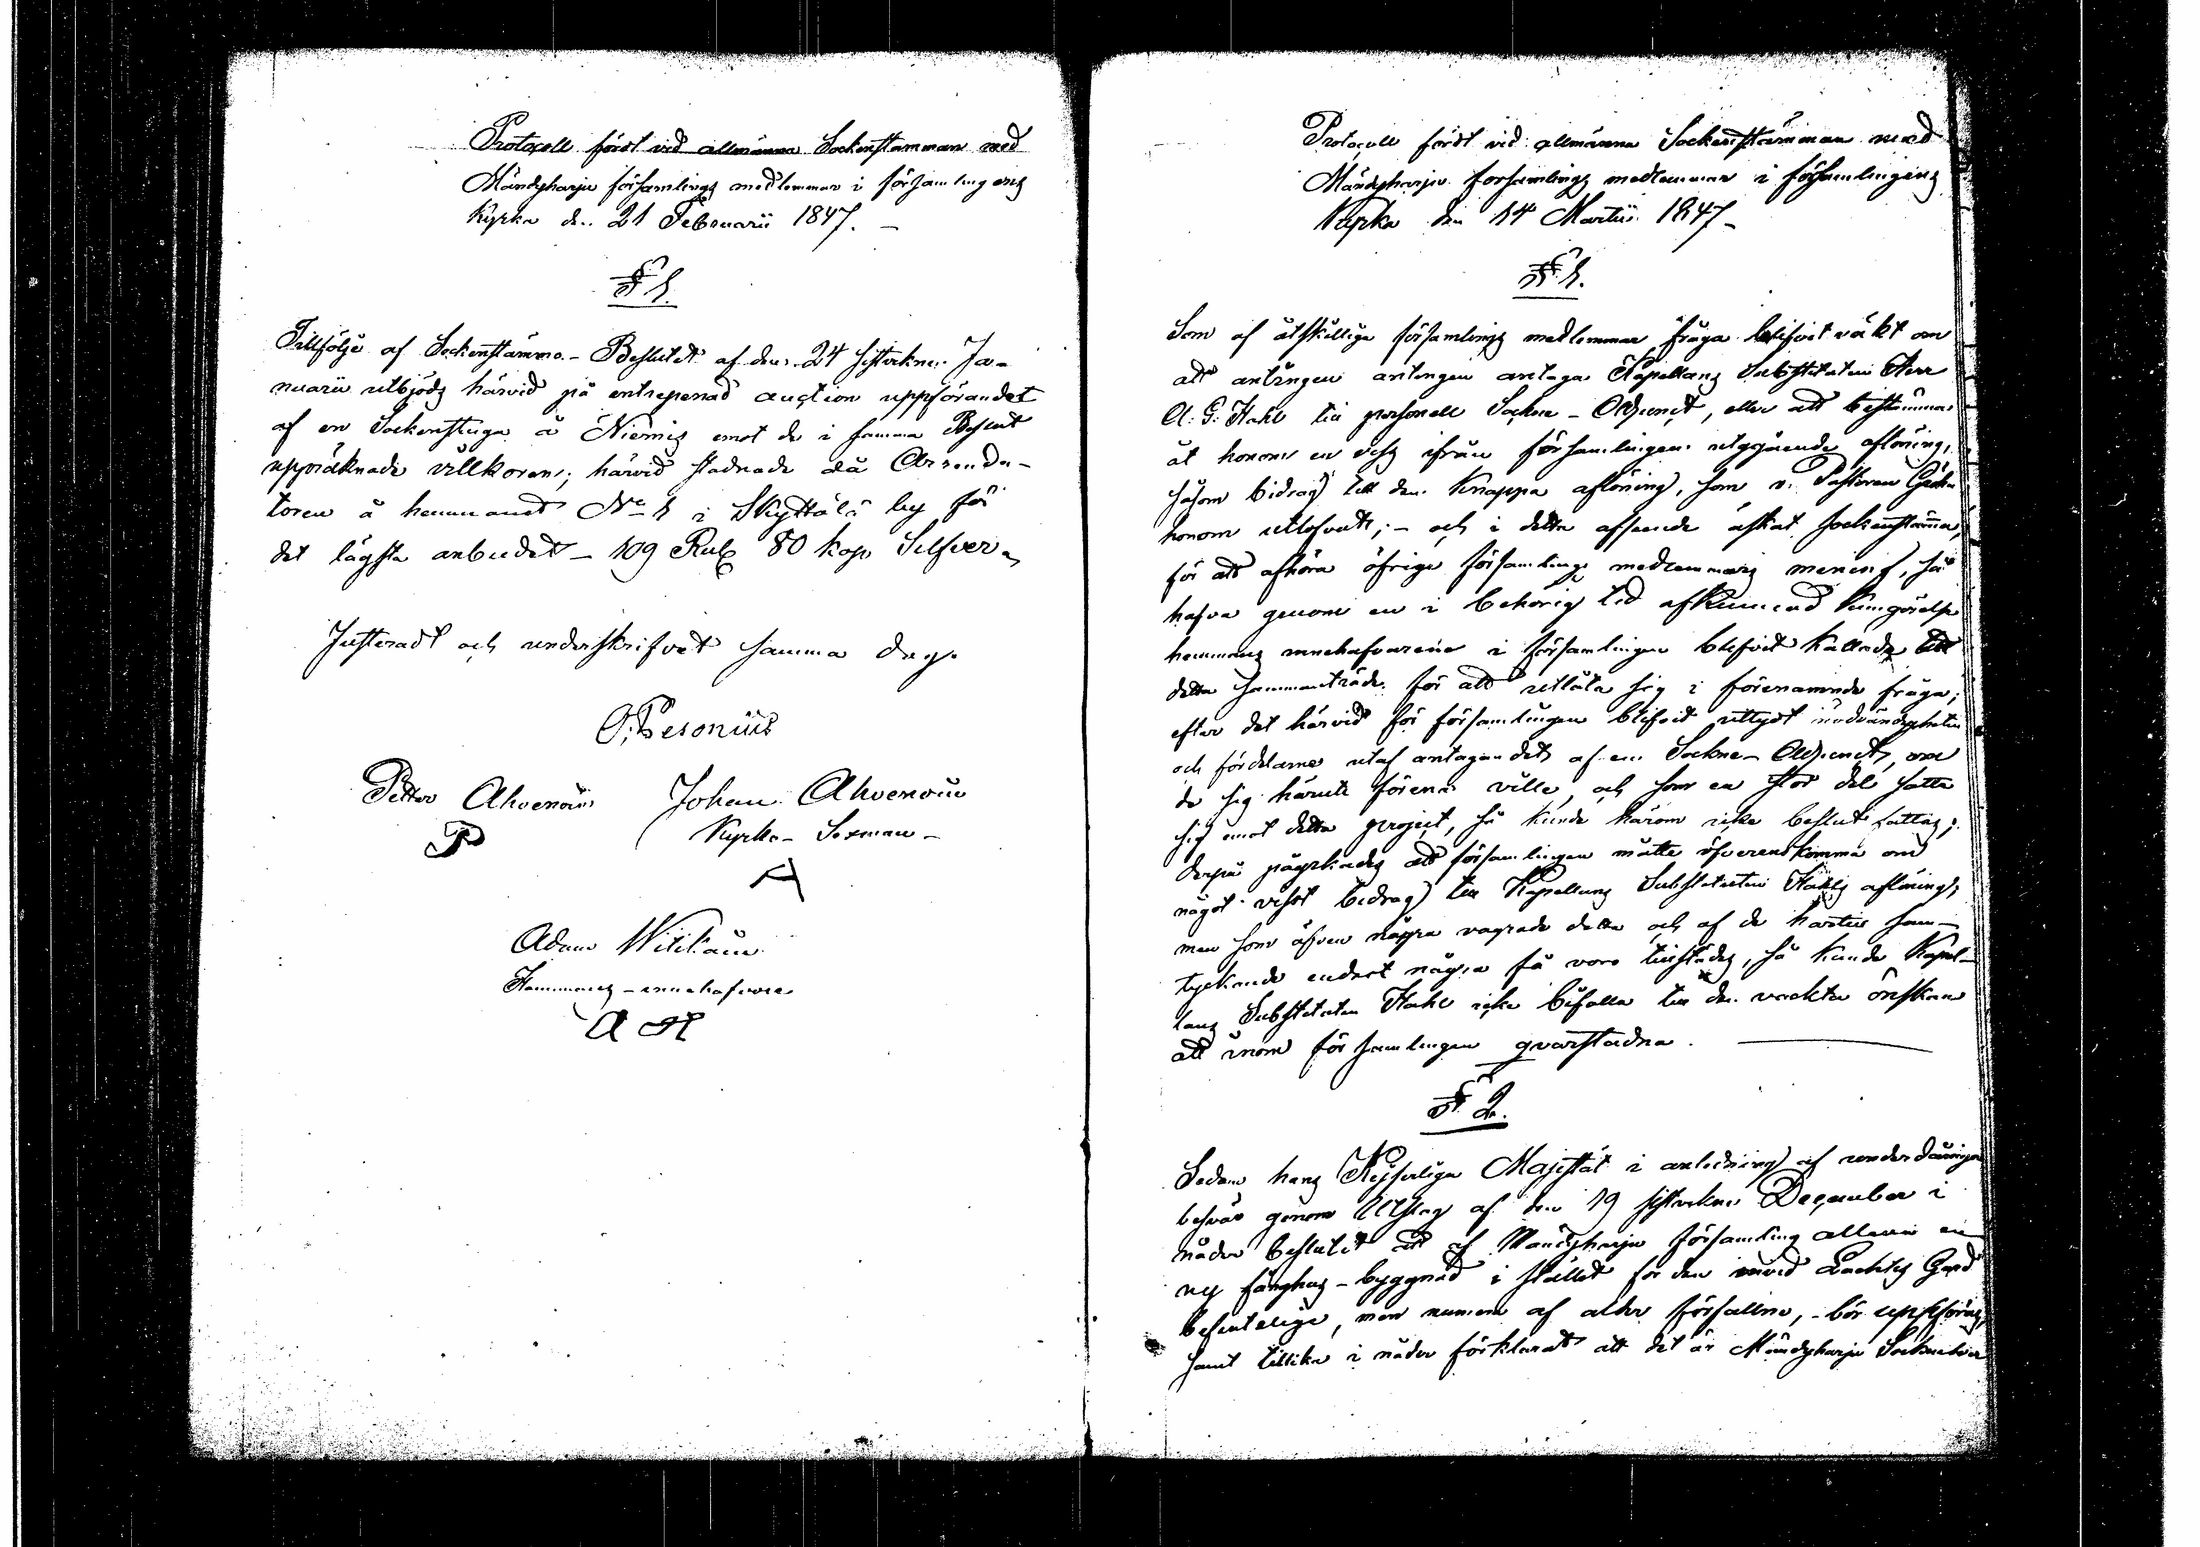 Protocoll fördt vid allmänna Sockenstämman med
Mändyharju församlings medlemmar i församlingens
Kyrka den 21 Februarii 1847.
§ 1.
Tillfölje af Sockenstämmo-Beslutet af den 24 sistvekne Ja-
nuarii utbjöds härvid på entrepenad auction uppförandet
af en Sockenstuga å Niemis emot de i samma Beslut
uppräknade villkoren; härvid stadnade då Arrenda-
toren å hemmanet No 1 i Skyttälä by för
det lägsta anbudet – 109 Rub 80 kop Silfver
Justeradt och underskrifvet samma dag.
O: Pesonius
Petter Ahvenain Johan Ahvenain
Kyrko-Sexman –
P
A
Adam Witikain
Hemmans-innehafvare
A H
Protocoll fördt vid allmänna Sockenstämman med
Mändyharju församlings medlemmar i församlingens
Kyrka den 14 Martii 1847 –
§ 1.
Som af åtskillige församlings medlemmar fråga blifvit väkt om
att antingen antingen antaga Kapellans Substituten Herr
A. G. Stahl till personell Sockne-Adjunct, eller att bestämma
åt honom en viss ifrån församlingen utgående aflöning,
såsom bidrag till den knappa aflöning, som v. Pastoren
honom utlofvat; – och i detta afseende äskat sockenstämma,
för att afhöra öfrige församlings medlemmars mening, så
hafva genom en i behörig tid afkunnad kungörelse
hemmans innehafvarene i församlingen blifvit kallade till
detta sammanträde för att utlåta sig i förenämnde fråga;
efter det härvid för församlingen blifvit uttydt nödvändigheten
och fördelarne utaf antagandet af en Sockne-Adjunct, om
de sig häruti förena ville, och som en stor del satte
sig emot detta project, så kunde härom icke beslut fattas;
derpå påyrkades att församlingen måtte öfverenskomma om
något visst bidrag till Kapellans Substituten Stahls aflöning;
men som äfven några vägrade detta och af de härtill sam-
tyckande endast några få voro tillstädes, så kunde Kapel-
lans Substituten Stahl icke bifalla till den väckta önskan
att inom församlingen qvarstadna.
§ 2.
Sedan hans Kejserliga Majestät i anledning af underdånige
besvär genom Utslag af den 19 sistvekne December i
nåder beslutit att af Mändyharju församling allena en
ny fånghus-byggnad i stället för den invid Lachtis Gård
befintelige, men numera af ålder förfallne, – bör uppföras,
samt tillika i nåder förklarat att det är Mändyharju Sockneboer